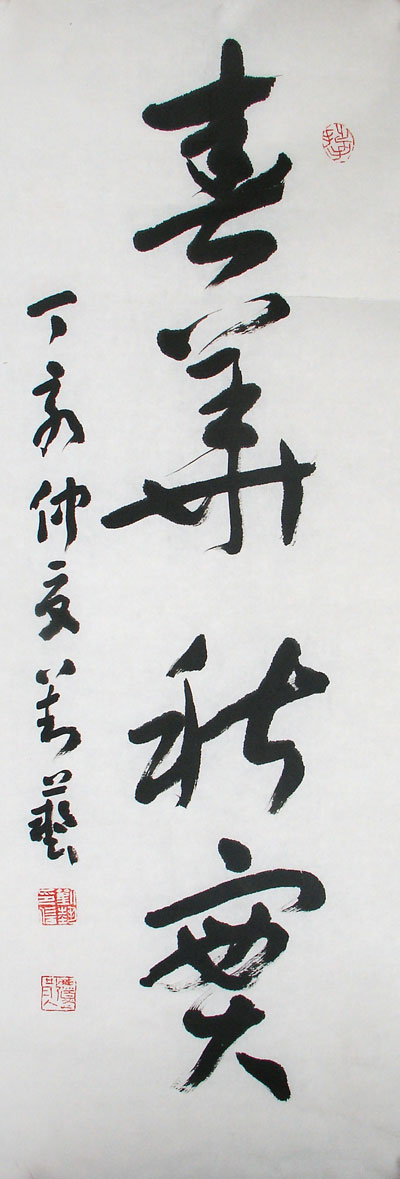 春華秋實
丁亥仲夏蓋藝